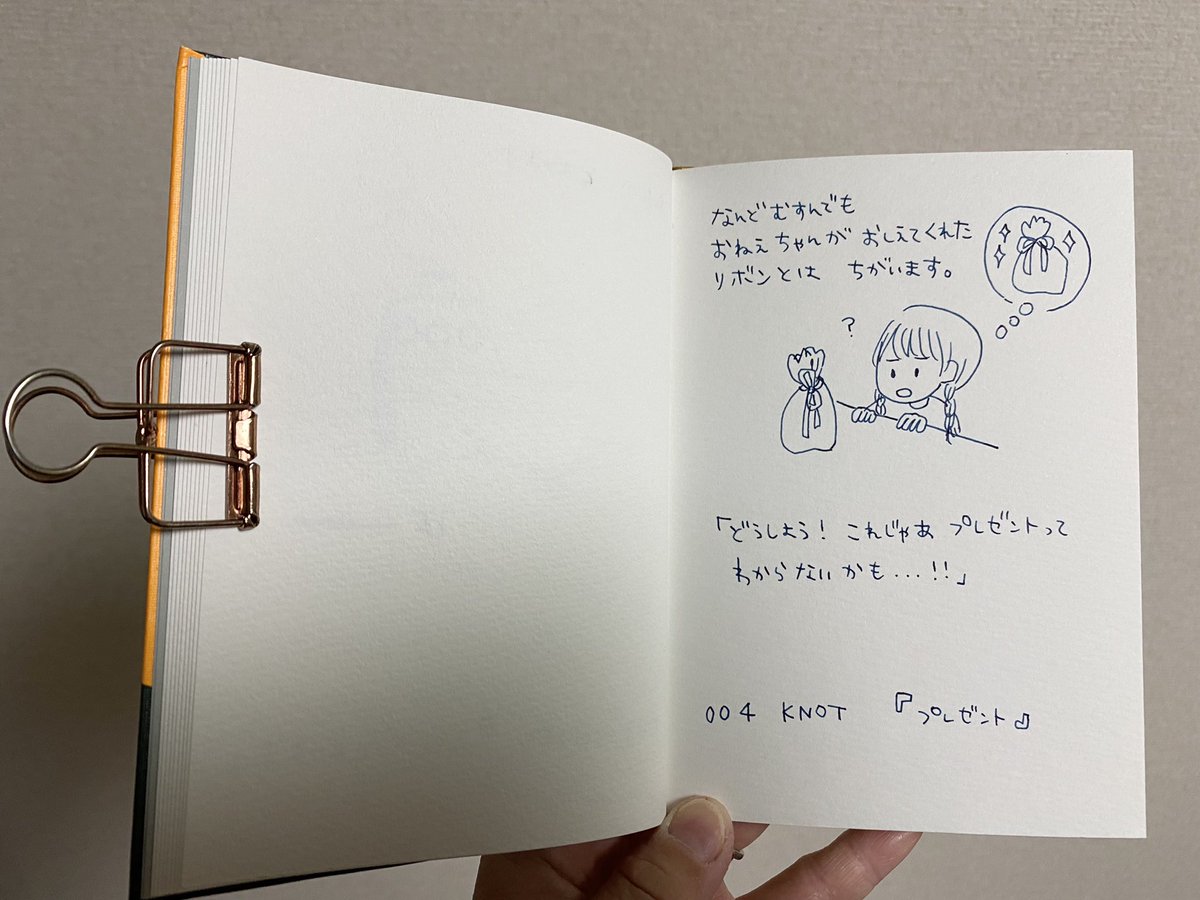 なんどむすんでも
おねえちゃんが おしえてくれた
リボンとは ちがいます。
?
「どうしよう! これじゃあ プレゼントって
わからないかも...!!」
004 KNOT 『プレゼント』